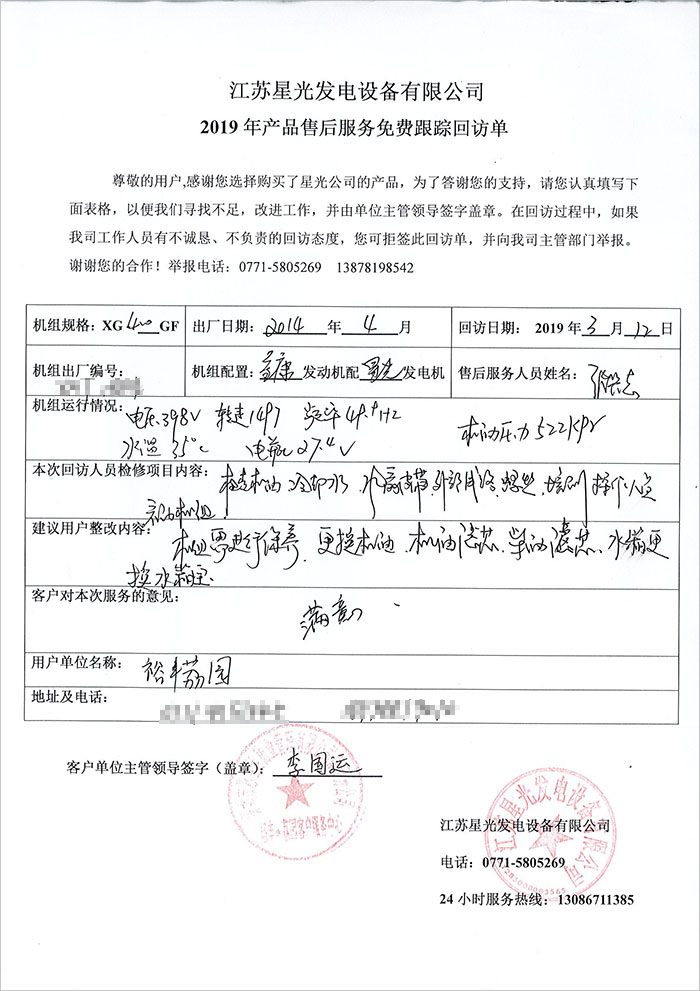 江苏星光发电设备有限公司
2019 年产品售后服务免费跟踪回访单
尊敬的用户,感谢您选择购买了星光公司的产品，为了答谢您的支持，请您认真填写下
面表格，以便我们寻找不足，改进工作，并由单位主管领导签字盖章。在回访过程中，如果
我司工作人员有不诚恳、不负责的回访态度，您可拒签此回访单，并向我司主管部门举报。
谢谢您的合作！举报电话：0771-5805269 13878198542
机组规格：XG 400 GF 出厂日期：2014 年 4 月 回访日期：2019 年 3 月 12 日
机组出厂编号： 机组配置： 发动机配 星光 发电机 售后服务人员姓名：
机组运行情况：电压398V 转速1497 频率49.9HZ 机油压力522KPa
水温35℃ 27.4V
本次回访人员检修项目内容：检查机油 冷却水 水箱 螺丝 培训 操作人员
机组
建议用户整改内容：机组需进行保养 更换机油 机油滤芯 柴油滤芯 水箱更
换水箱宝
客户对本次服务的意见：满意
用户单位名称：裕丰荔园
地址及电话：
客户单位主管领导签字（盖章）：李国运
江苏星光发电设备有限公司
江苏星光发电设备有限公司
电话：0771-5805269
24 小时服务热线：13086711385